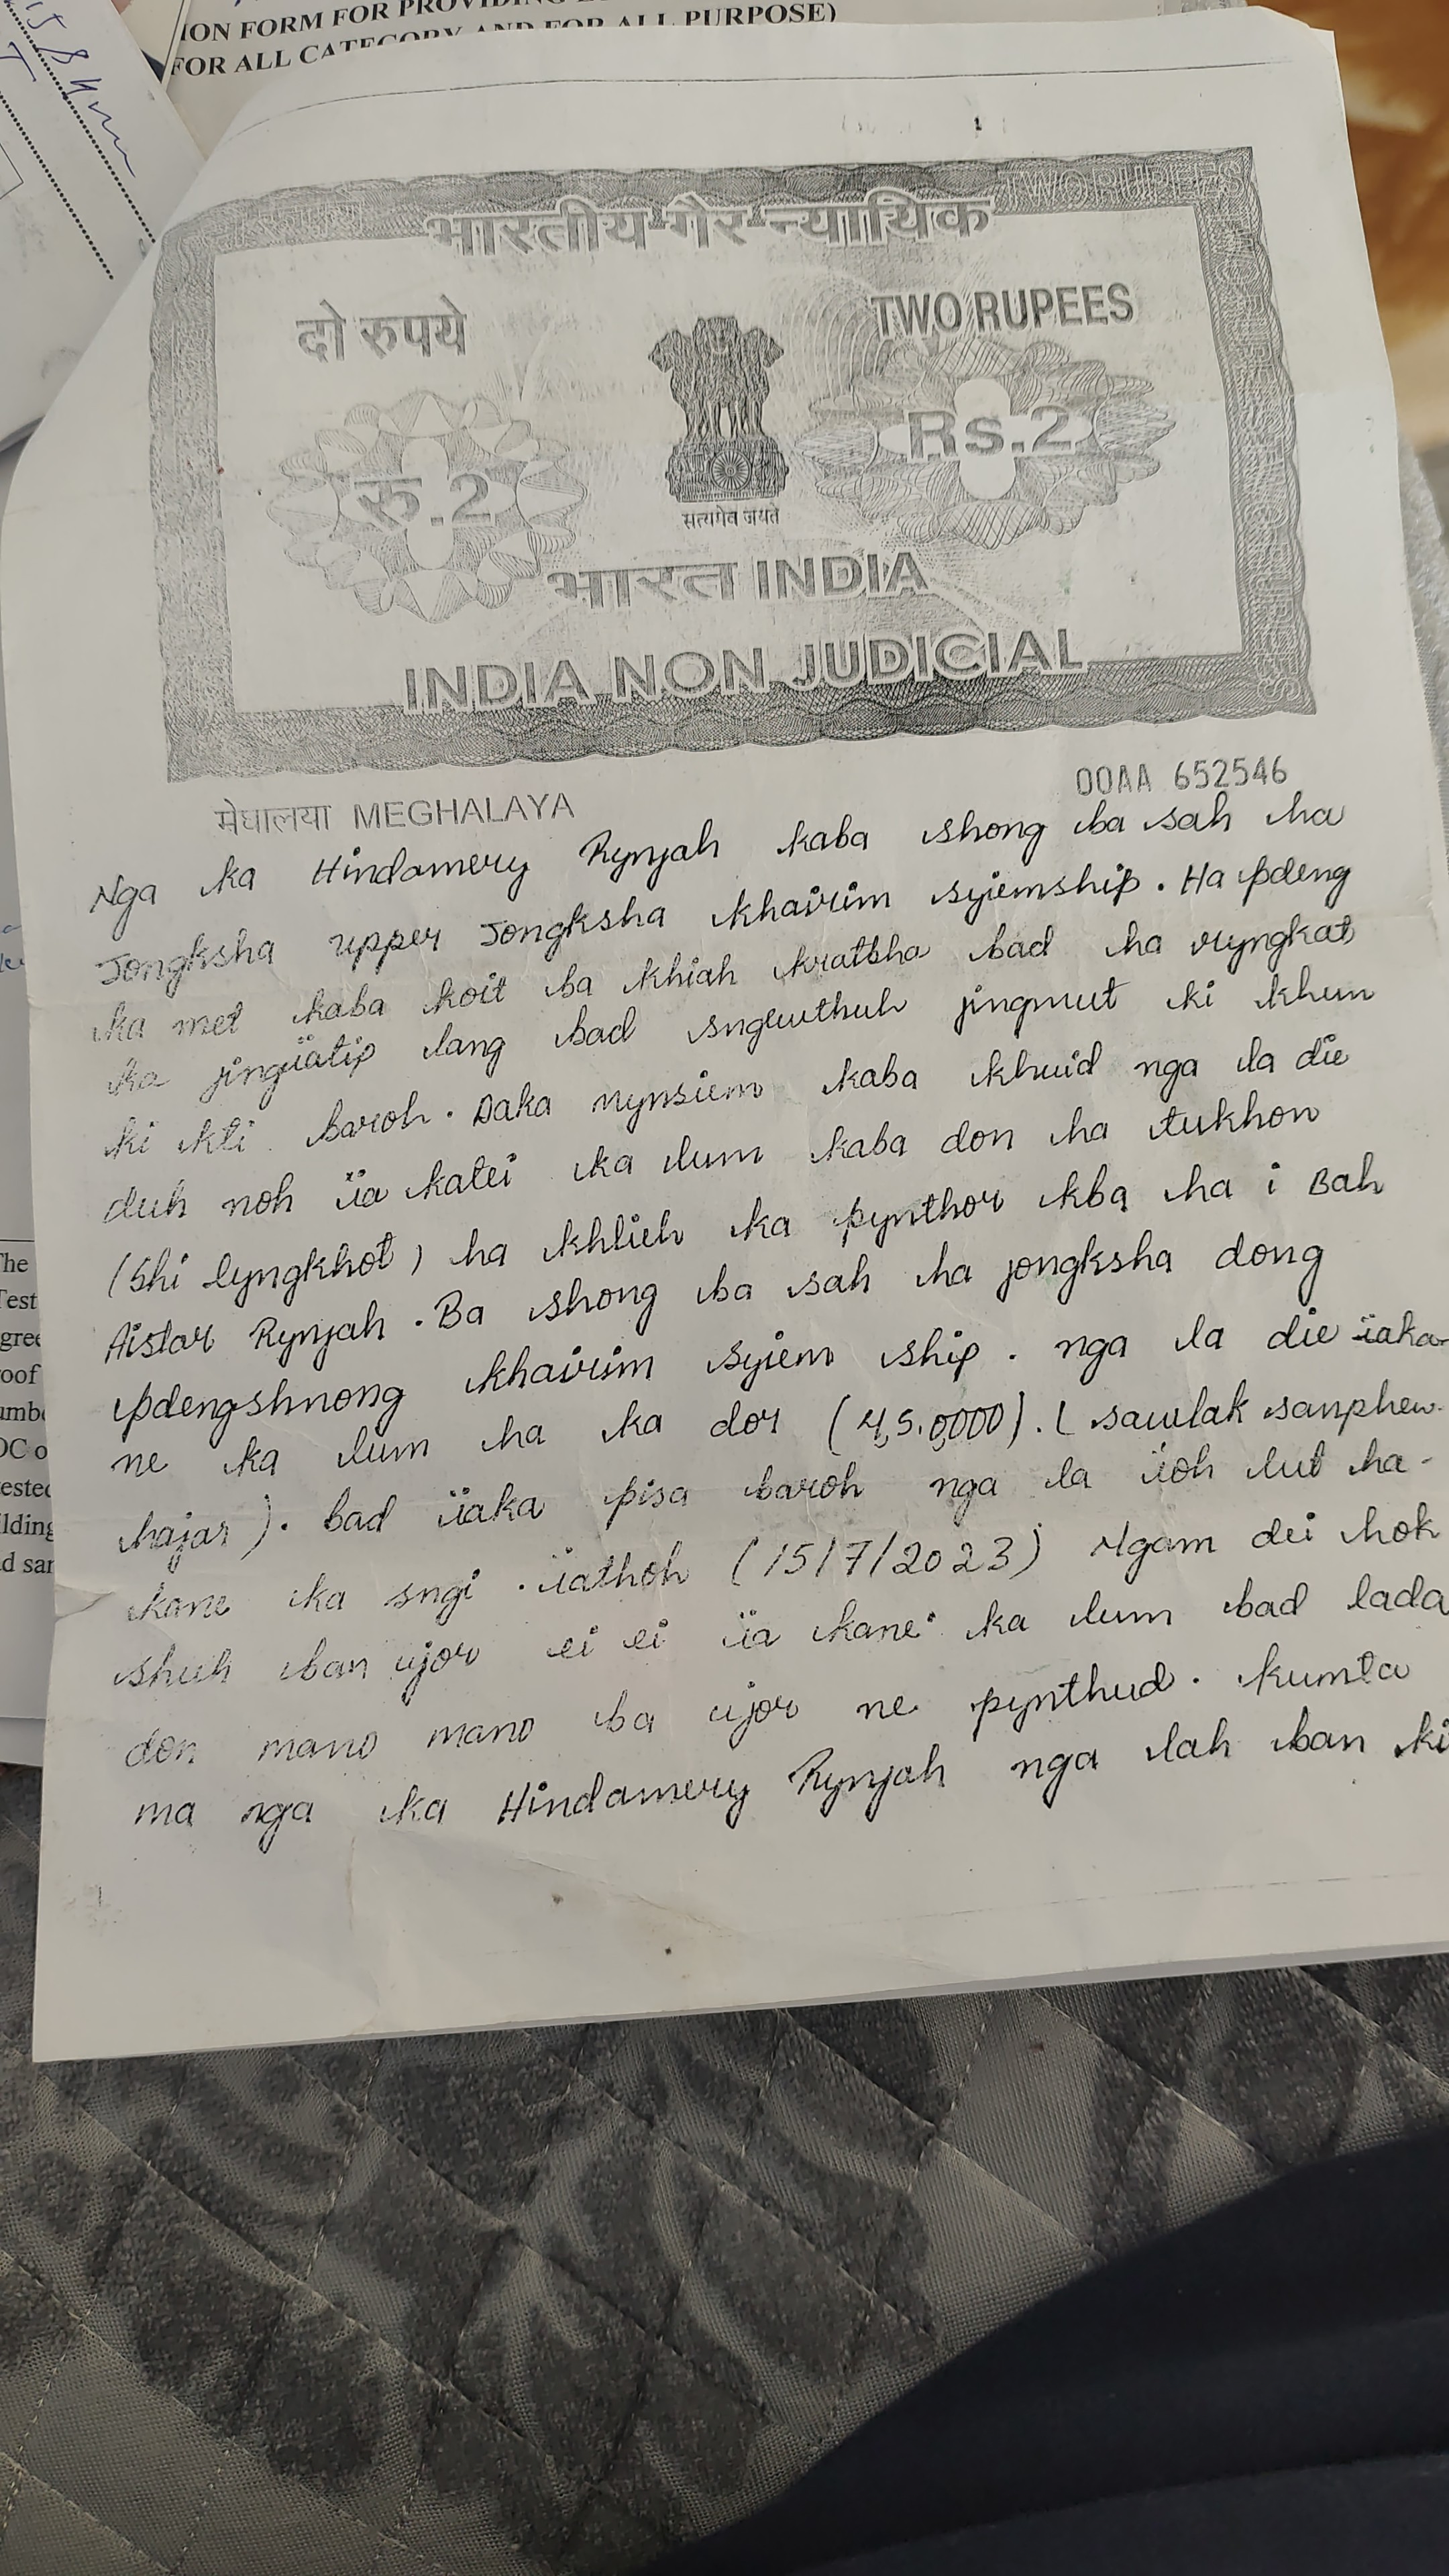 ION FORM FOR PROVIDING
FOR ALL CATEGORY AND FOR ALL PURPOSE)
1
TWO RUPEES
भारतीय गैर न्यायिक
दो रुपये
TWO RUPEES
रु.2
Rs.2
सत्यमेव जयते
भारत INDIA
INDIA NON JUDICIAL
मेघालया MEGHALAYA
00AA 652546
Nga ka Hindamery Rynjah kaba shong ba sah ha
Jongksha upper Jongksha khairim syiemship. Ha pdeng
ka met kaba koit ba khiah kratbha bad ha ryngkat
ka jingïatip lang bad sngewthuh jingmut ki khun
ki kti baroh. Daka mynsiem kaba khuid nga la die
duh noh ïa katei ka lum kaba don ha tukhon
(Shi lyngkhot) ha khlieh ka pynthor kba ha i Bah
Aistar Rynjah. Ba shong ba sah ha jongksha dong
pdengshnong khairim syiem ship. nga la die ïaka
ne ka lum ha ka dor (4,5.0,000). ( sawlak sanphew
hajar). bad ïaka pisa baroh nga la ïoh lut ha-
kane ka sngi. ïathoh (15/7/2023) Ngam dei hok
shuh ban ujor ei ei ïa kane ka lum bad lada
don mano mano ba ujor ne pynthud. kumta
ma nga ka Hindamery Rynjah nga lah ban ki
The
Test
gree
roof
umbe
OC o
ested
ilding
d san